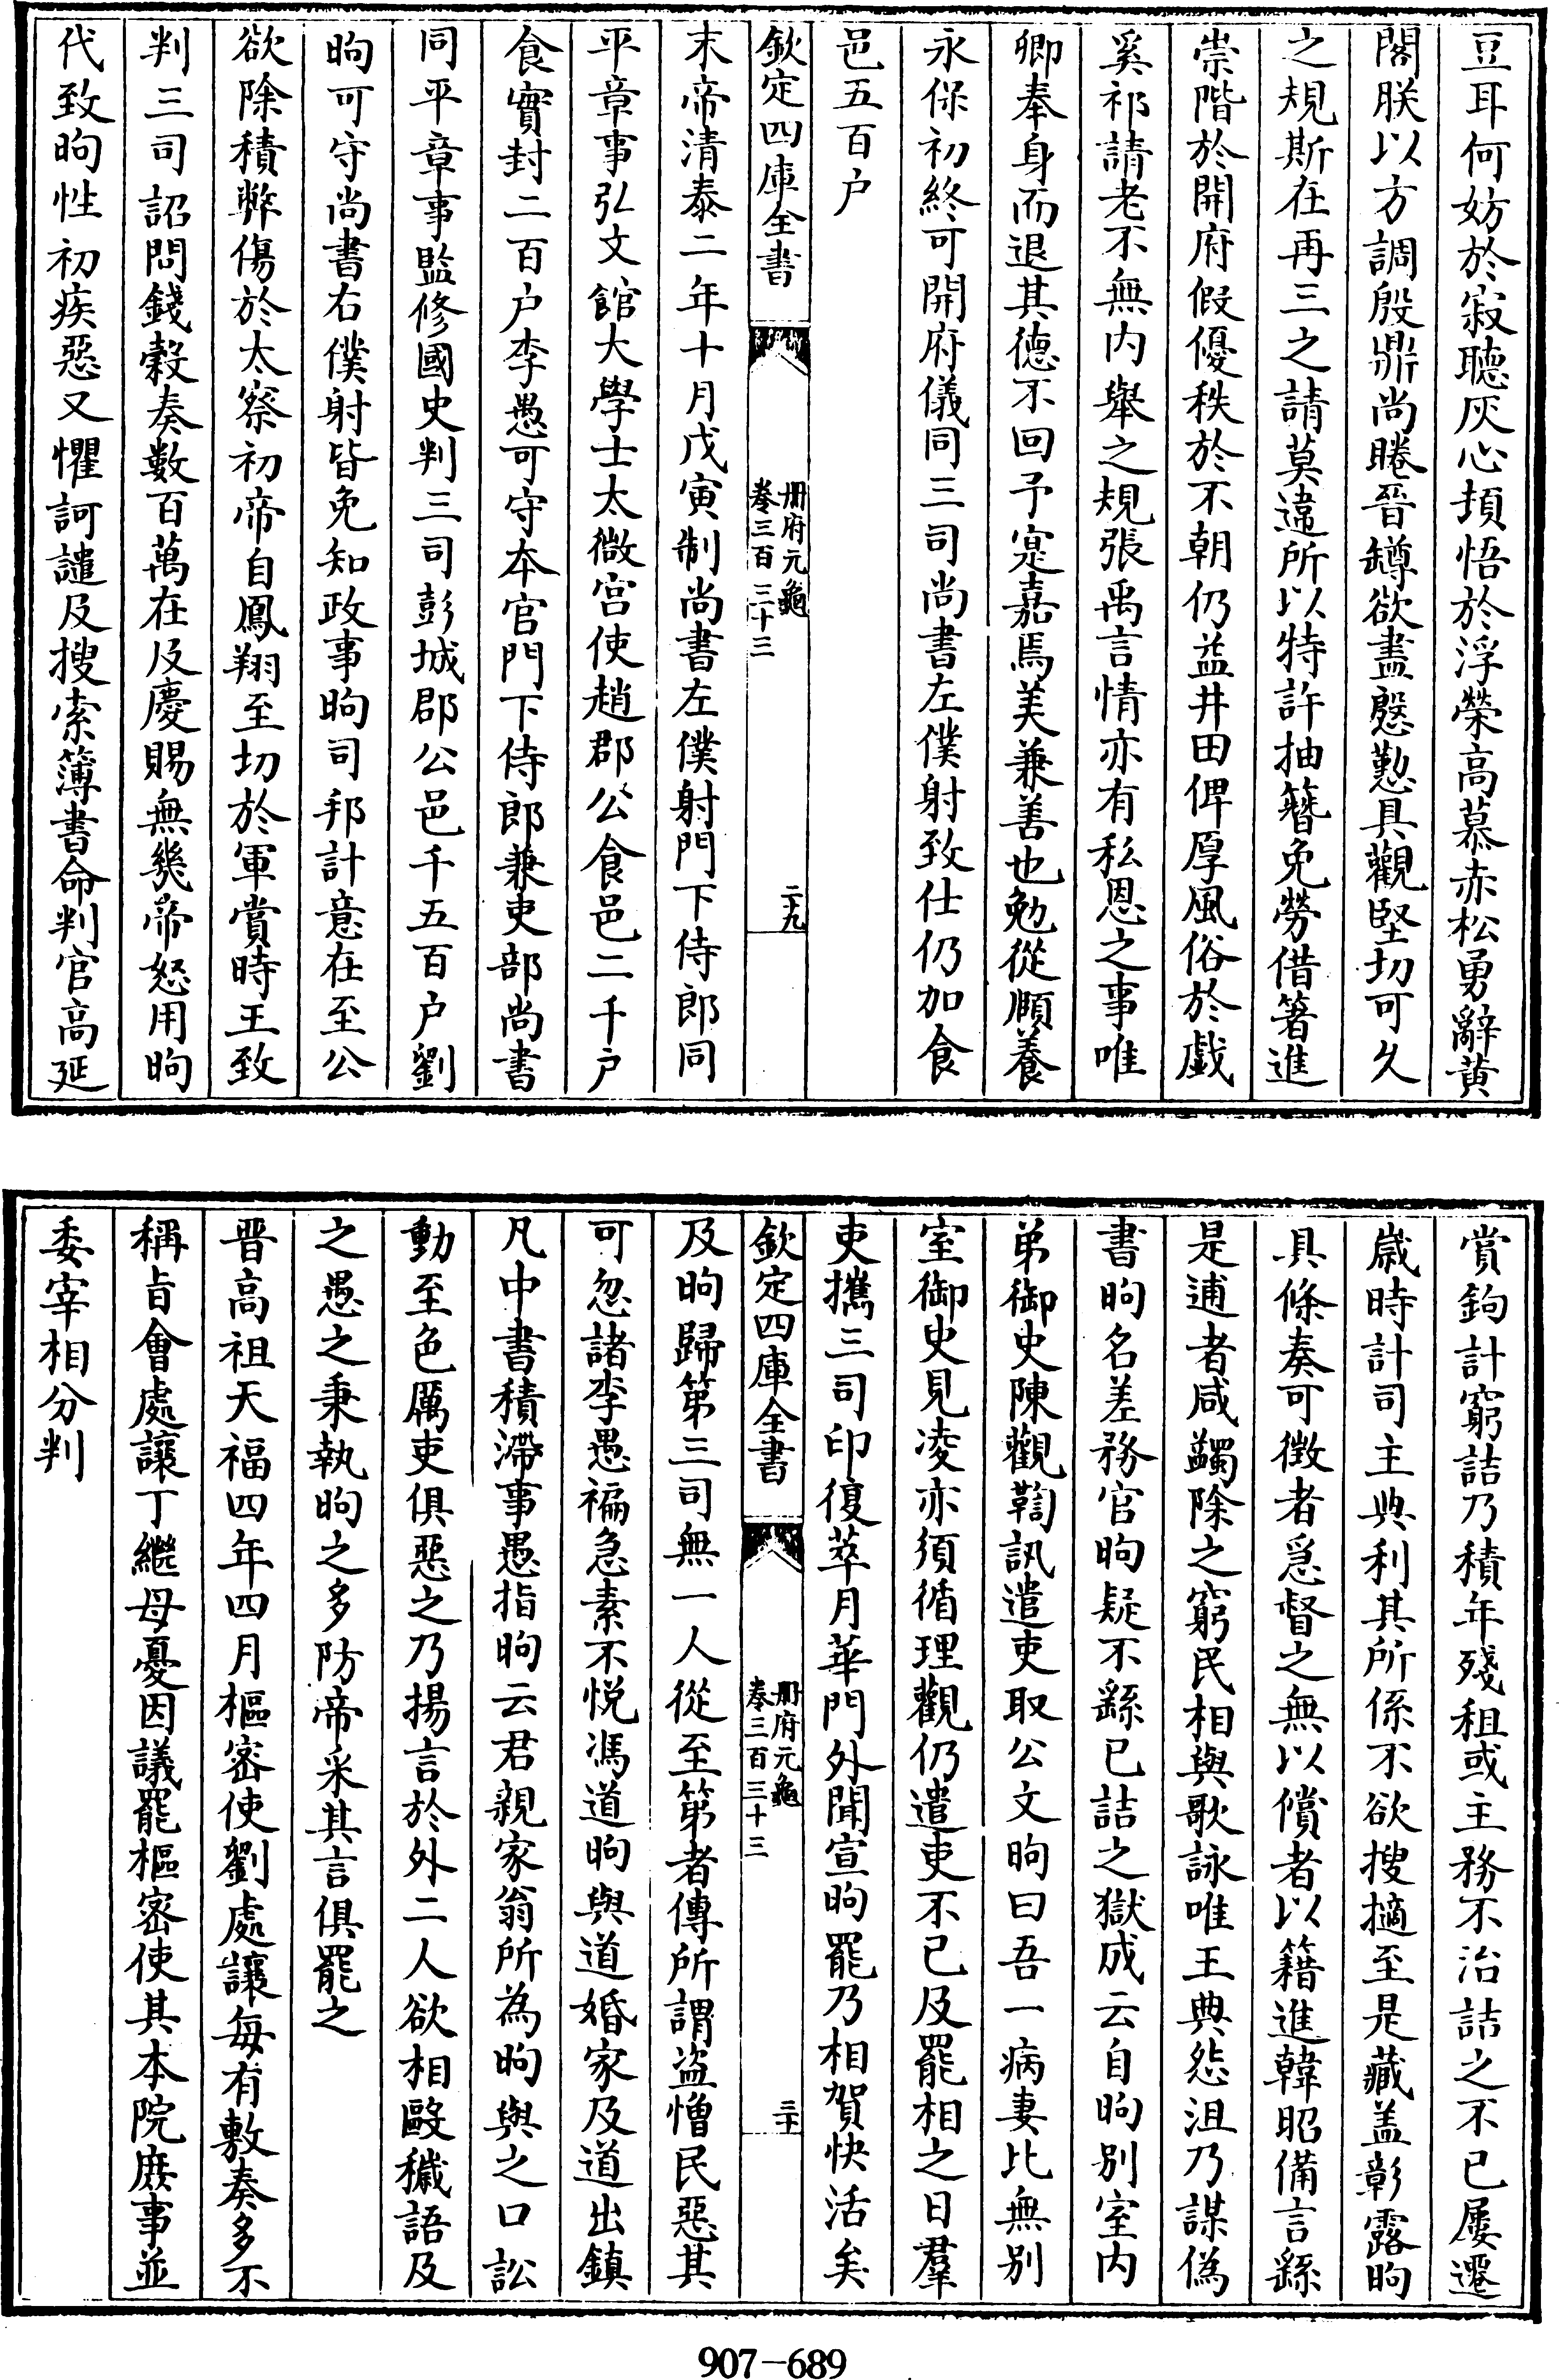 豆耳何妨於寂聽灰心頊悟於浮榮高慕赤松勇辭黃
閣朕以方調殷鼎尚睠晉罇欲盡慇懃具觀堅切可久
之規斯在再三之請莫違所以特許抽簪免勞借箸進
崇階於開府假優秩於不朝仍益井田俾厚風俗於戲
奚祁請老不無內舉之規張禹言情亦有私恩之事唯
卿奉身而退其德不回予寔嘉焉美兼善也勉從頤養
永保初終可開府儀同三司尚書左僕射致仕仍加食
邑五百户
欽定四庫全書
冊府元龜
卷三百三十三
二十九
末帝清泰二年十月戊寅制尚書左僕射門下侍郎同
平章事弘文館大學士太微宫使趙郡公食邑二千户
食實封二百户李愚可守本官門下侍郎兼吏部尚書
同平章事監修國史判三司彭城郡公邑千五百户劉
昫可守尚書右僕射皆免知政事昫司邦計意在至公
欲除積弊傷於太察初帝自鳳翔至切於軍賞時王致
判三司詔問錢穀奏數百萬在及慶賜無幾帝怒用昫
代致昫性初疾惡又懼訶譴及搜索簿書命判官高延
賞鉤計窮詰乃積年殘租或主務不治詰之不已屢遷
歲時計司主典利其所係不欲搜擿至是藏盖彰露昫
具條奏可徴者急督之無以償者以籍進韓昭備言繇
是逋者咸蠲除之窮民相與歌詠唯王典怨沮乃謀偽
書昫名差務官昫疑不繇已詰之獄成云自昫别室内
弟御史陳觀鞫訊遣吏取公文昫曰吾一病妻比無别
室御史見凌亦須循理觀仍遣吏不已及罷相之日羣
吏攜三司印復萃月華門外聞宣昫罷乃相賀快活矣
欽定四庫全書
冊府元龜
卷三百三十三
三十
及昫歸第三司無一人從至第者傳所謂盗憎民惡其
可忽諸李愚褊急素不悦馮道昫與道婚家及道出鎮
凡中書積滯事愚指昫云君親家翁所為昫與之口訟
動至色厲吏俱惡之乃揚言於外二人欲相毆穢語及
之愚之秉執昫之多防帝采其言俱罷之
晋高祖天福四年四月樞密使劉處讓每有敷奏多不
稱旨會處讓丁繼母憂因議罷樞密使其本院庶事並
委宰相分判
907-689